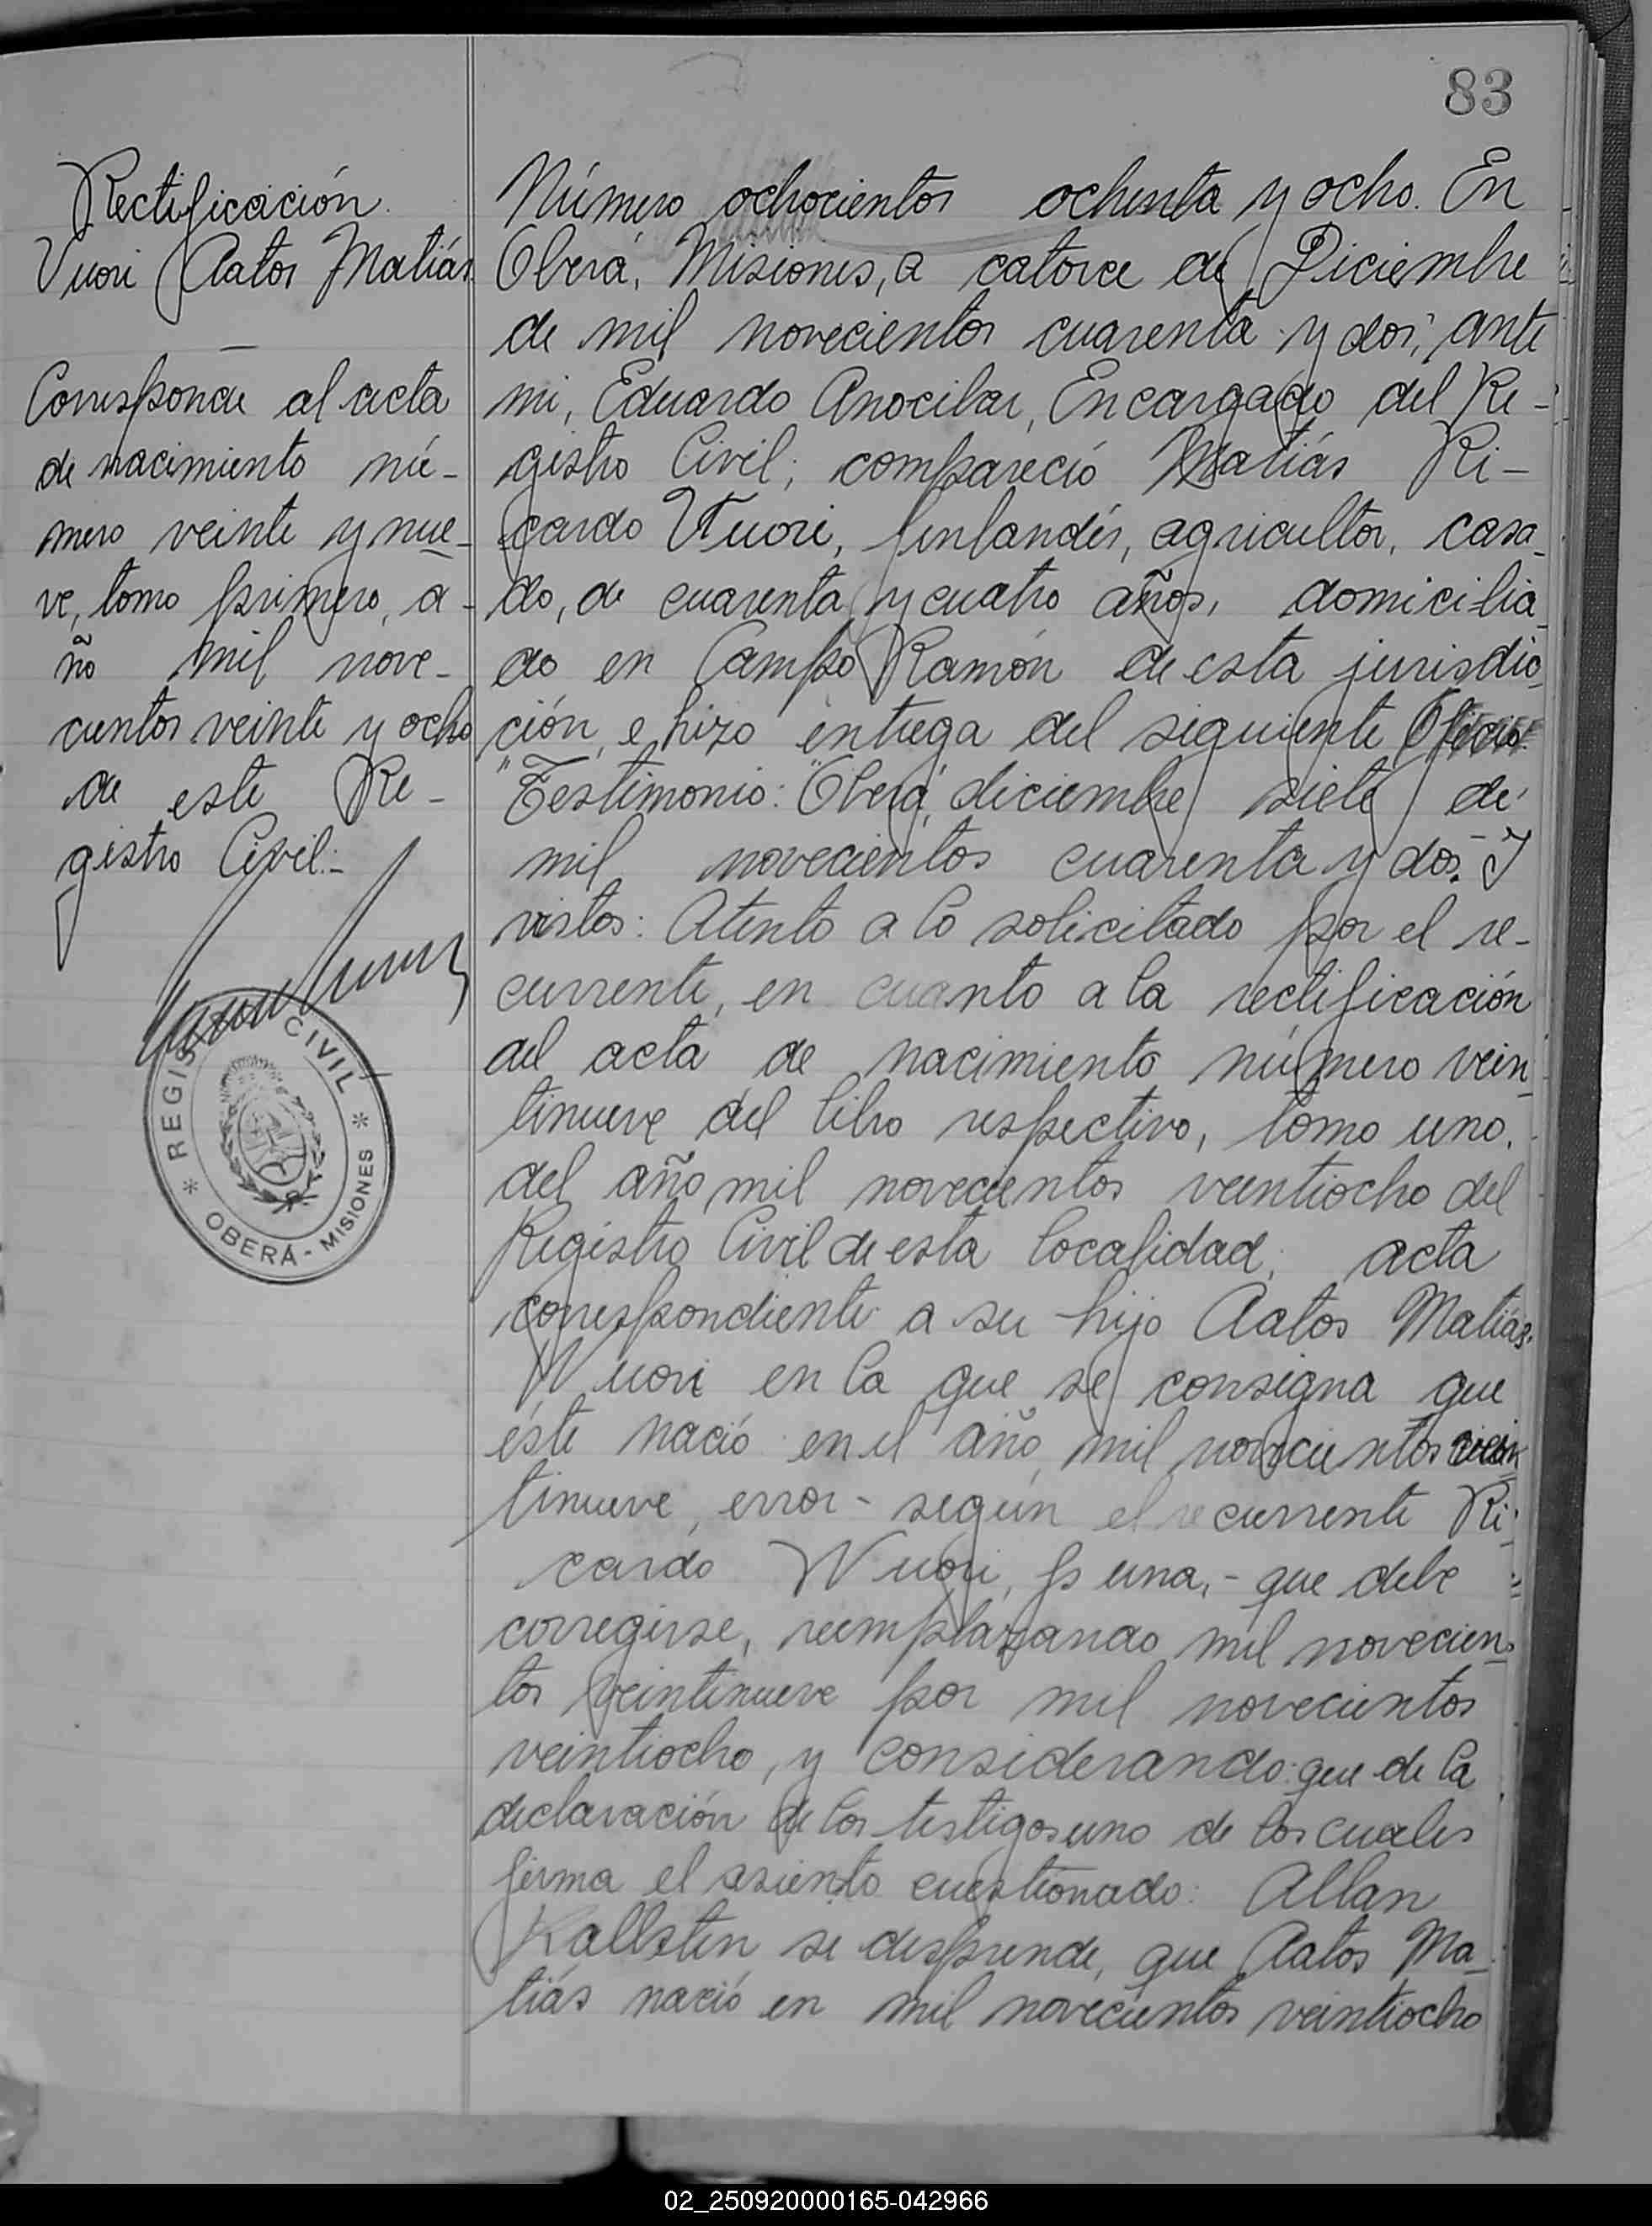 83
Rectificación.
Vuori Aatos Matiás.
Corresponde al acta
de nacimiento nú-
mero veinte y nue-
ve, tomo primero, a-
ño mil nove-
cientos veinte y ocho
de este Re-
gistro Civil:-
REGIS CIVIL
* OBERÁ - MISIONES *
Número ochocientos ochenta y ocho. En
Oberá, Misiones, a catorce de Diciembre
de mil novecientos cuarenta y dos, ante
mi, Eduardo Anocibar, Encargado del Re-
gistro Civil; compareció Matiás Ri-
cardo Vuori, finlandés, agricultor, casa-
do, de cuarenta y cuatro años, domicilia-
do en Campo Ramón de esta jurisdic-
ción, e hizo entrega del siguiente
"Testimonio: "Oberá, diciembre siete de
mil novecientos cuarenta y dos.- Y
vistos: Atento a lo solicitado por el re-
currente, en cuanto a la rectificación
del acta de nacimiento número vein-
tinueve del libro respectivo, tomo uno,
del año mil novecientos veintiocho del
Registro Civil de esta localidad, acta
correspondiente a su hijo Aatos Matiás
Wuori en la que se consigna que
éste nació en el año mil novecientos vein
tinueve, error - según el recurrente Ri-
cardo Wuori, fs una, - que debe
corregirse, reemplazando mil novecien-
tos veintinueve por mil novecientos
veintiocho, y considerando: que de la
declaración de los testigos uno de los cuales
firma el asiento cuestionado: Allan
Kallsten se desprende, que Aatos Ma-
tiás nació en mil novecientos veintiocho
02_250920000165-042966